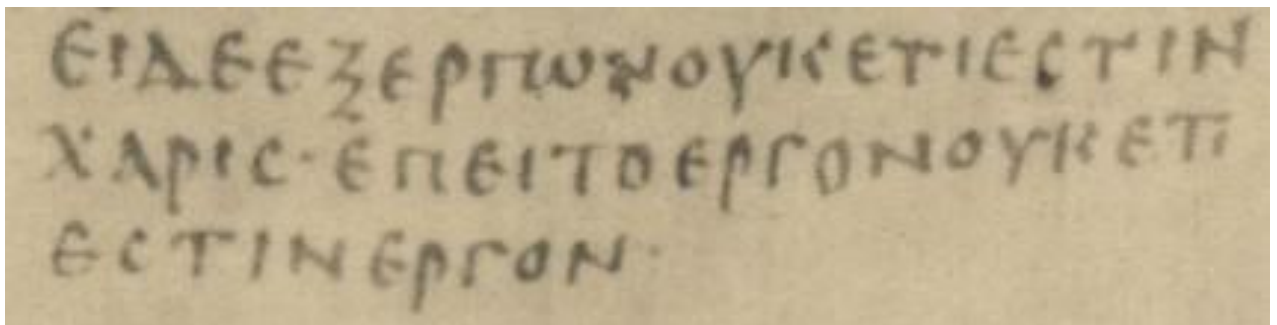 ΕΙΔΕΕΞΕΡΓΩΝΟΥΚΕΤΙΕϹΤΙΝ
ΧΑΡΙϹ·ΕΠΕΙΤΟΕΡΓΟΝΟΥΚΕΤΙ
ΕϹΤΙΝΕΡΓΟΝ·